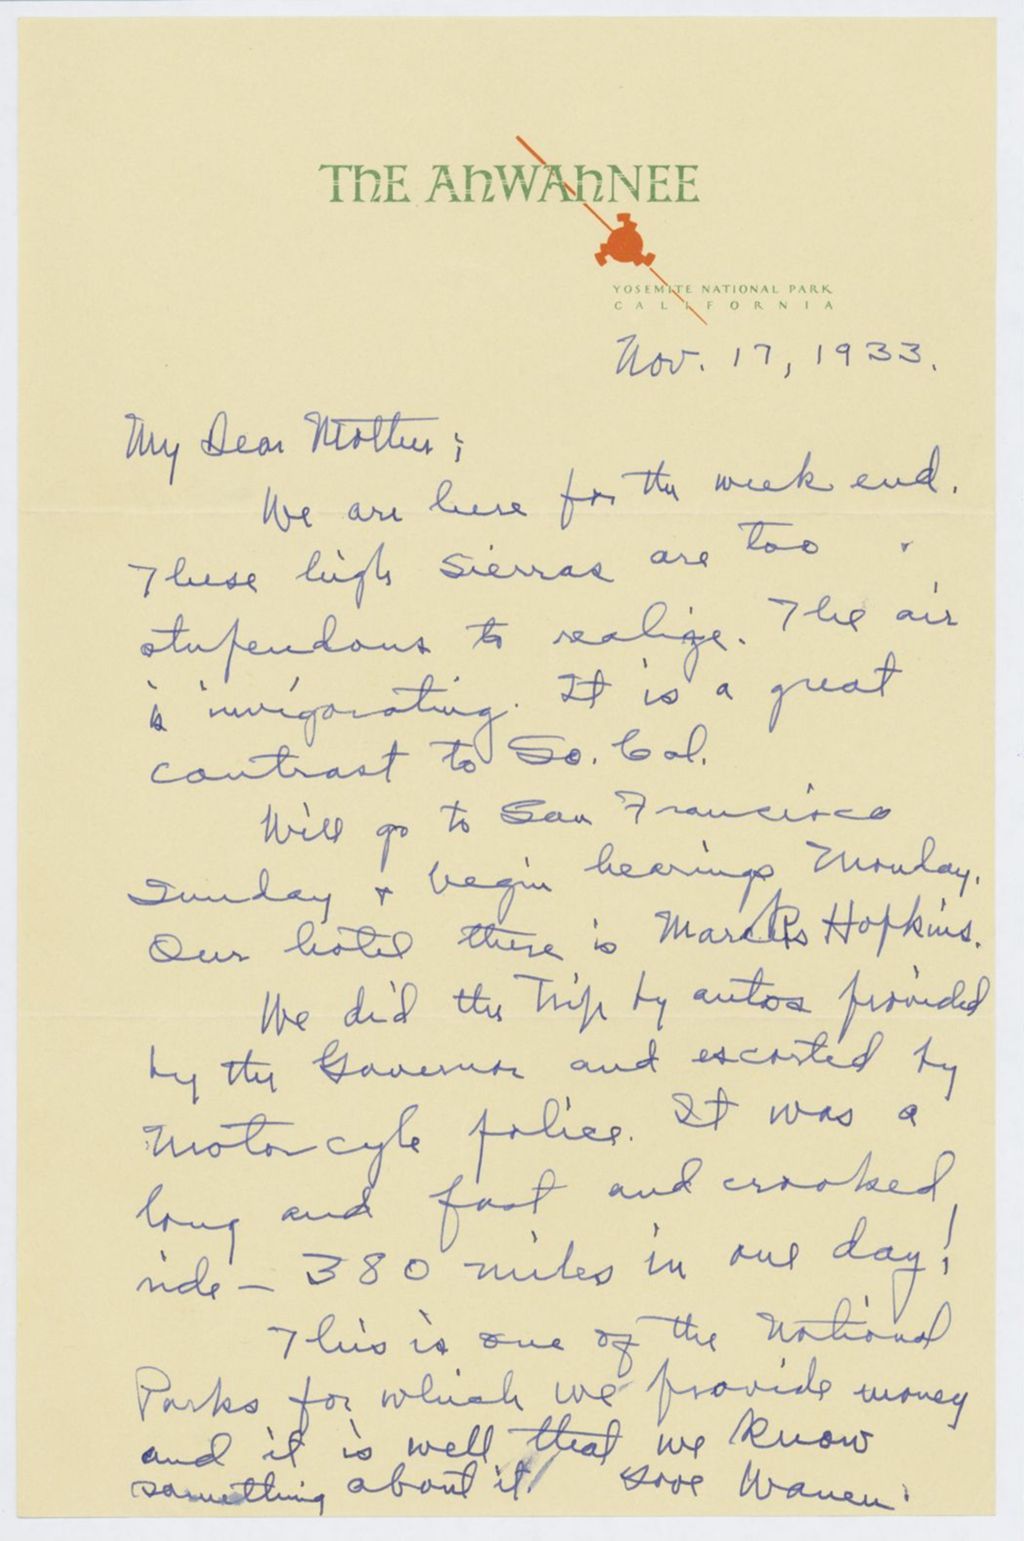 THE AHWAHNEE
YOSEMITE NATIONAL PARK
CALIFORNIA
Nov. 17, 1933.
My Dear Mother;
We are here for the week end.
These high Sierras are too
stupendous to realize. The air
is invigorating. It is a great
contrast to So. Cal.
Will go to San Francisco
Sunday & begin hearings Monday.
Our hotel there is Mark Hopkins.
We did the trip by autos provided
by the Governor and escorted by
Motorcycle police. It was a
long and fast and crooked
ride – 380 miles in one day!
This is one of the National
Parks for which we provide money
and it is well that we know
something about it. Love Warren.